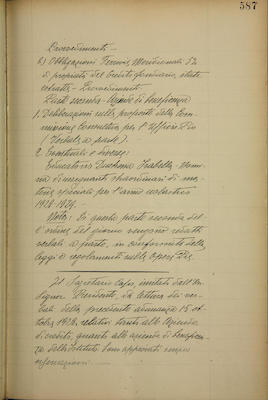 587
Provvedimenti –
6) Obbligazioni Ferrovie Meridionali 3%
di proprietà del Credito fondiario, state
estratte – Provvedimenti
Parte seconda – Aziende di beneficenza
1. Deliberazioni sulle proposte della Com-
missione Consultiva per l'Ufficio Pio
(Verbale a parte).
2. Eventuali e diverse:
Educatorio Duchessa Isabella – Nomi-
na di insegnanti straordinari di ma-
terie speciali per l'anno scolastico
1928-1929.
Nota: Di questa parte seconda del-
l'ordine del giorno vengono redatti
verbali a parte, in conformità delle
leggi e regolamenti sulle Opere Pie.
Il Segretario Capo, invitato dall'On.
Signor Presidente, dà lettura dei ver-
bali della precedente adunanza 15 ot-
tobre 1928, relativi tanto alle Aziende
di credito, quanto alle aziende di beneficen-
za dell'Istituto. Sono approvati senza
osservazioni.